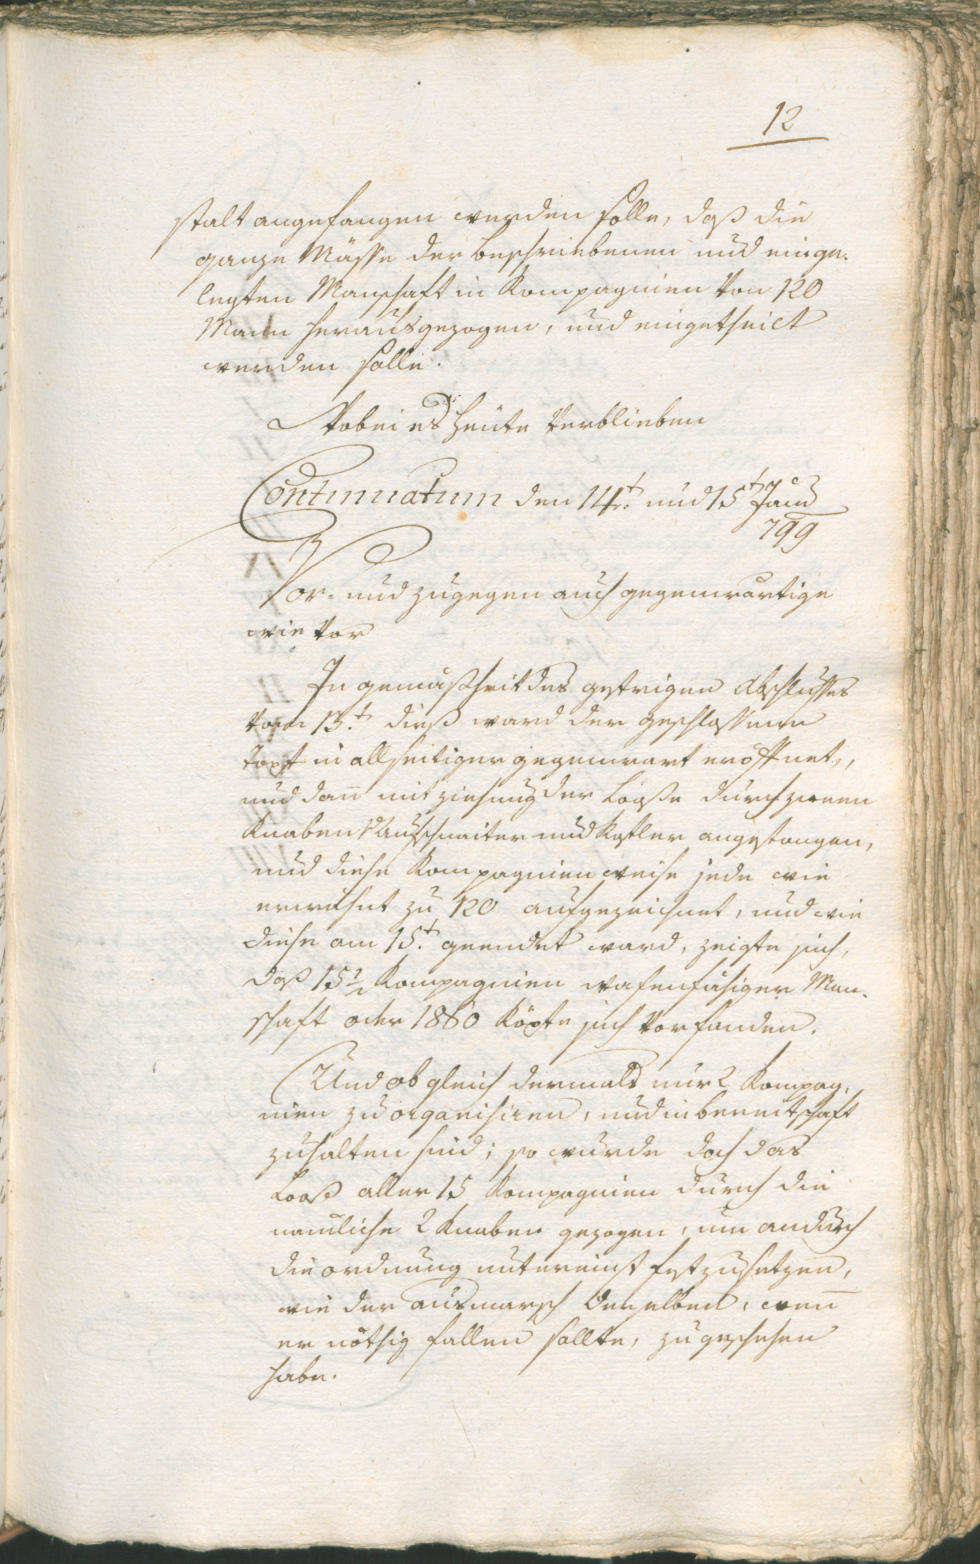 12
stalt angefangen werden solle, daß die
ganze Mässe der beschriebenen und einge-
legten Manschaft in Kompagnien von 120
Mann herausgezogen, und eingetheilt
werden solle.
Wobei es heute verblieben
Continuatum den 14t. und 15t Jaus
799
Vor- und zugegen auch gegenwärtige
wie vor
In gemäßheit des gestrigen Abschlusses
vom 13t. dieß ward der geschlossene
Topf in allseitiger gegenwart eröffnet,
und dan mit ziehung der Looße durch zween
Knaben und Kostler angefangen,
und diese Kompagnienweise jede wie
erwähnt zu 120 aufgezeichnet, und wie
diese am 15t. geendet ward, zeigte sich,
daß 15 1/2 Kompagnien wafenfähiger Man-
schaft oder 1860 Köpfe sich vorfanden.
Und obgleich dermals nur 2 Kompag-
nien zu organisiren, und in bereitschaft
zuhalten sind; so wurde doch das
Looß aller 15 Kompagnien durch die
nemliche 2 Knaben gezogen, um andurch
die ordnung untereinst festzusetzen,
wie der ausmarsch derselben, wen
er nöthig fallen sollte, zu geschehen
habe.